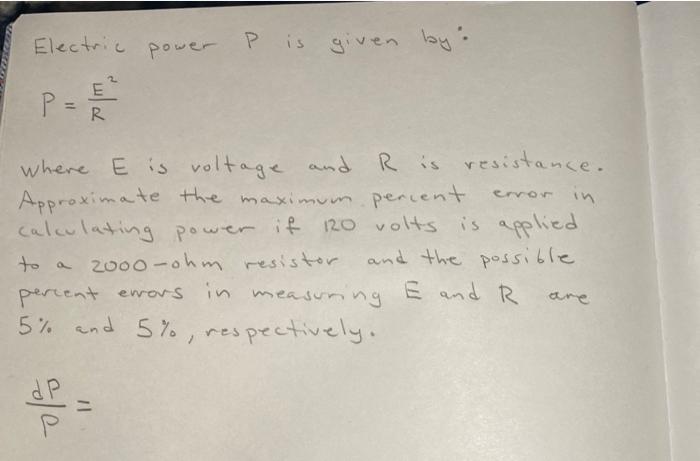 Electric power P is given by:
P = E²/R
where E is voltage and R is resistance.
Approximate the maximum percent error in
calculating power if 120 volts is applied
to a 2000-ohm resistor and the possible
percent errors in measuring E and R are
5% and 5%, respectively.
dP/P =